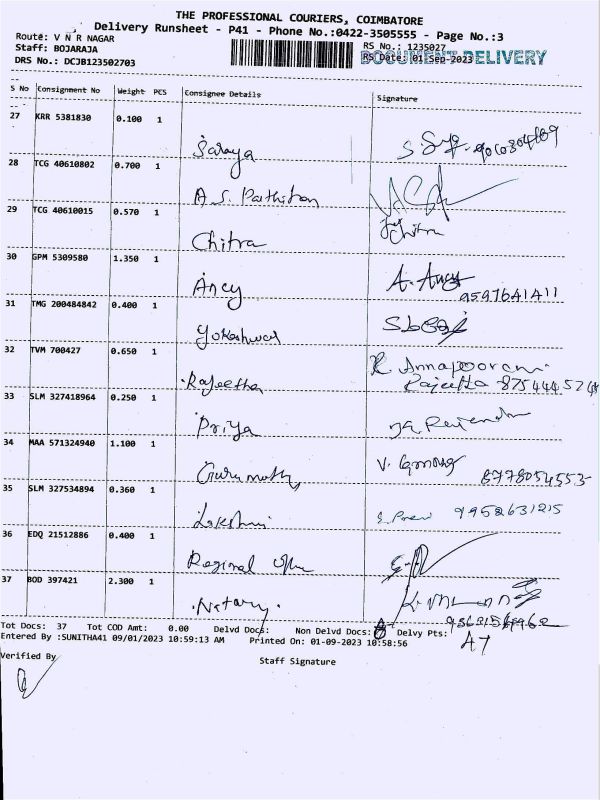 THE PROFESSIONAL COURIERS, COIMBATORE
Delivery Runsheet - P41 - Phone No.:0422-3505555 - Page No.:3
Route: V N R NAGAR
RS No.: 1235027
Staff: BOJARAJA
RS Date: 01-Sep-2023
DOCUMENT DELIVERY
DRS No.: DCJB123502703
S No Consignment No Weight PCS Consignee Details Signature
27 KRR 5381830 0.100 1
Saraya
28 TCG 40610802 0.700 1
A.S. Parthiban
29 TCG 40610015 0.570 1
Chitra Chitra
30 GPM 5309580 1.350 1
Ancy A. Ancy
9597641411
31 TMG 200484842 0.400 1
Yokeshwar
32 TVM 700427 0.650 1
R Annapoorani
Rajeetha Rajeetha
33 SLM 327418964 0.250 1
Priya
34 MAA 571324940 1.100 1
Gurumoothy V.
8778054553
35 SLM 327534894 0.360 1
Lakshmi 9952631215
36 EDQ 21512886 0.400 1
Reginal
37 BOD 397421 2.300 1
Notary.
Tot Docs: 37 Tot COD Amt: 0.00 Delvd Docs: Non Delvd Docs: Delvy Pts:
Entered By :SUNITHA41 09/01/2023 10:59:13 AM Printed On: 01-09-2023 10:58:56
A7
Verified By
Staff Signature